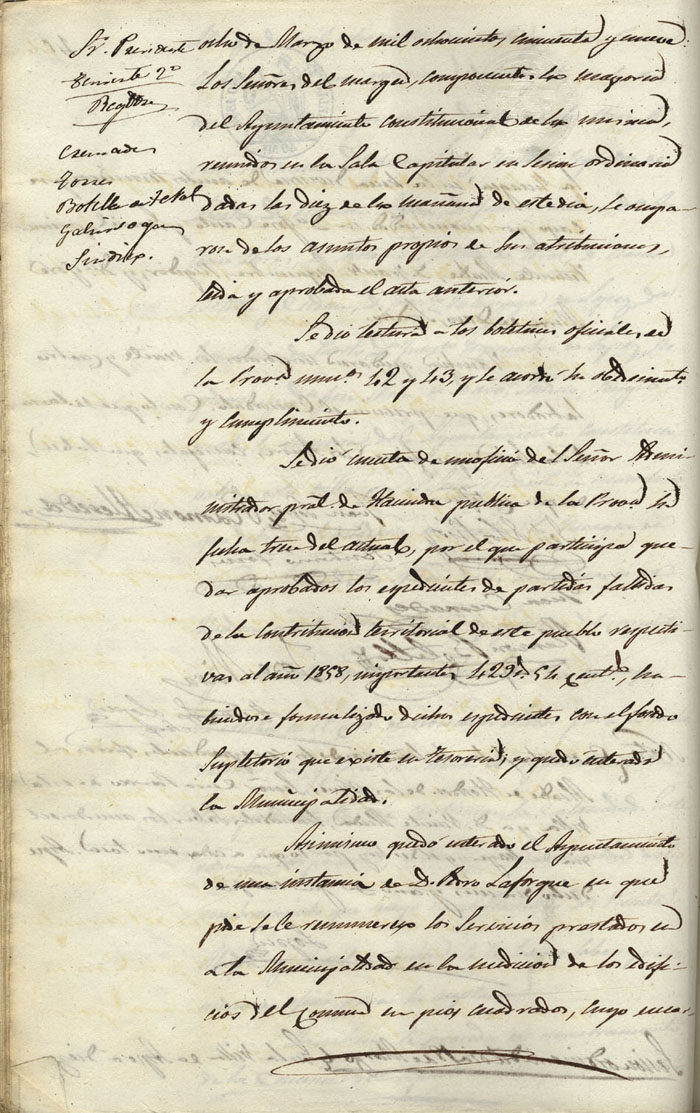 Sr. Presidente
Teniente 2º
Regidores
Cremades
Torres
Botella
Galiano
Sindico.
ocho de Marzo de mil ochocientos cincuenta y nueve
Los Señores del margen, componentes la mayoria
del Ayuntamiento constitucional de la misma,
reunidos en la Sala Capitular en Sesion ordinaria
dadas las diez de la mañana de este dia, se ocupa-
ron de los asuntos propios de sus atribuciones,
leida y aprobada el acta anterior.
Se dio lectura a los boletines oficiales de
la Prova. numos. 42 y 43, y se acordó su obedecimto.
y cumplimiento.
Se dió cuenta de un oficio del Señor Admi-
nistrador pral. de Hacienda publica de la Prova. su
fecha trece del actual, por el que participa que-
dar aprobados los espedientes de partidas fallidas
de la Contribucion territorial de este pueblo respecti-
vas al año 1858, importantes 429 54 cents., ha-
biendose formalizado dichos espedientes con el fondo
Supletorio que existe en tesoreria; y quedó enterada
la Municipalidad.
Asimismo quedó enterado el Ayuntamiento
de una instancia de D. Pedro Laforgue en que
pide se le remuneren los Servicios prestados
a la Municipalidad en la medicion de los edifi-
cios del Comun en pies cuadrados, cuyo encar-